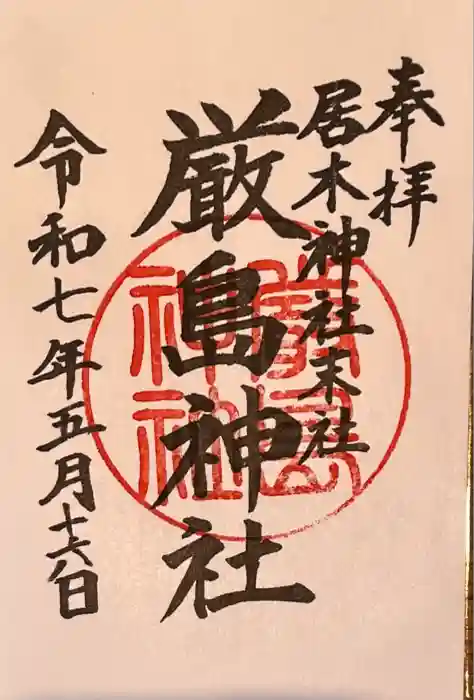 奉拝
居木神社末社
厳島神社
令和七年五月十六日
嚴島
神社